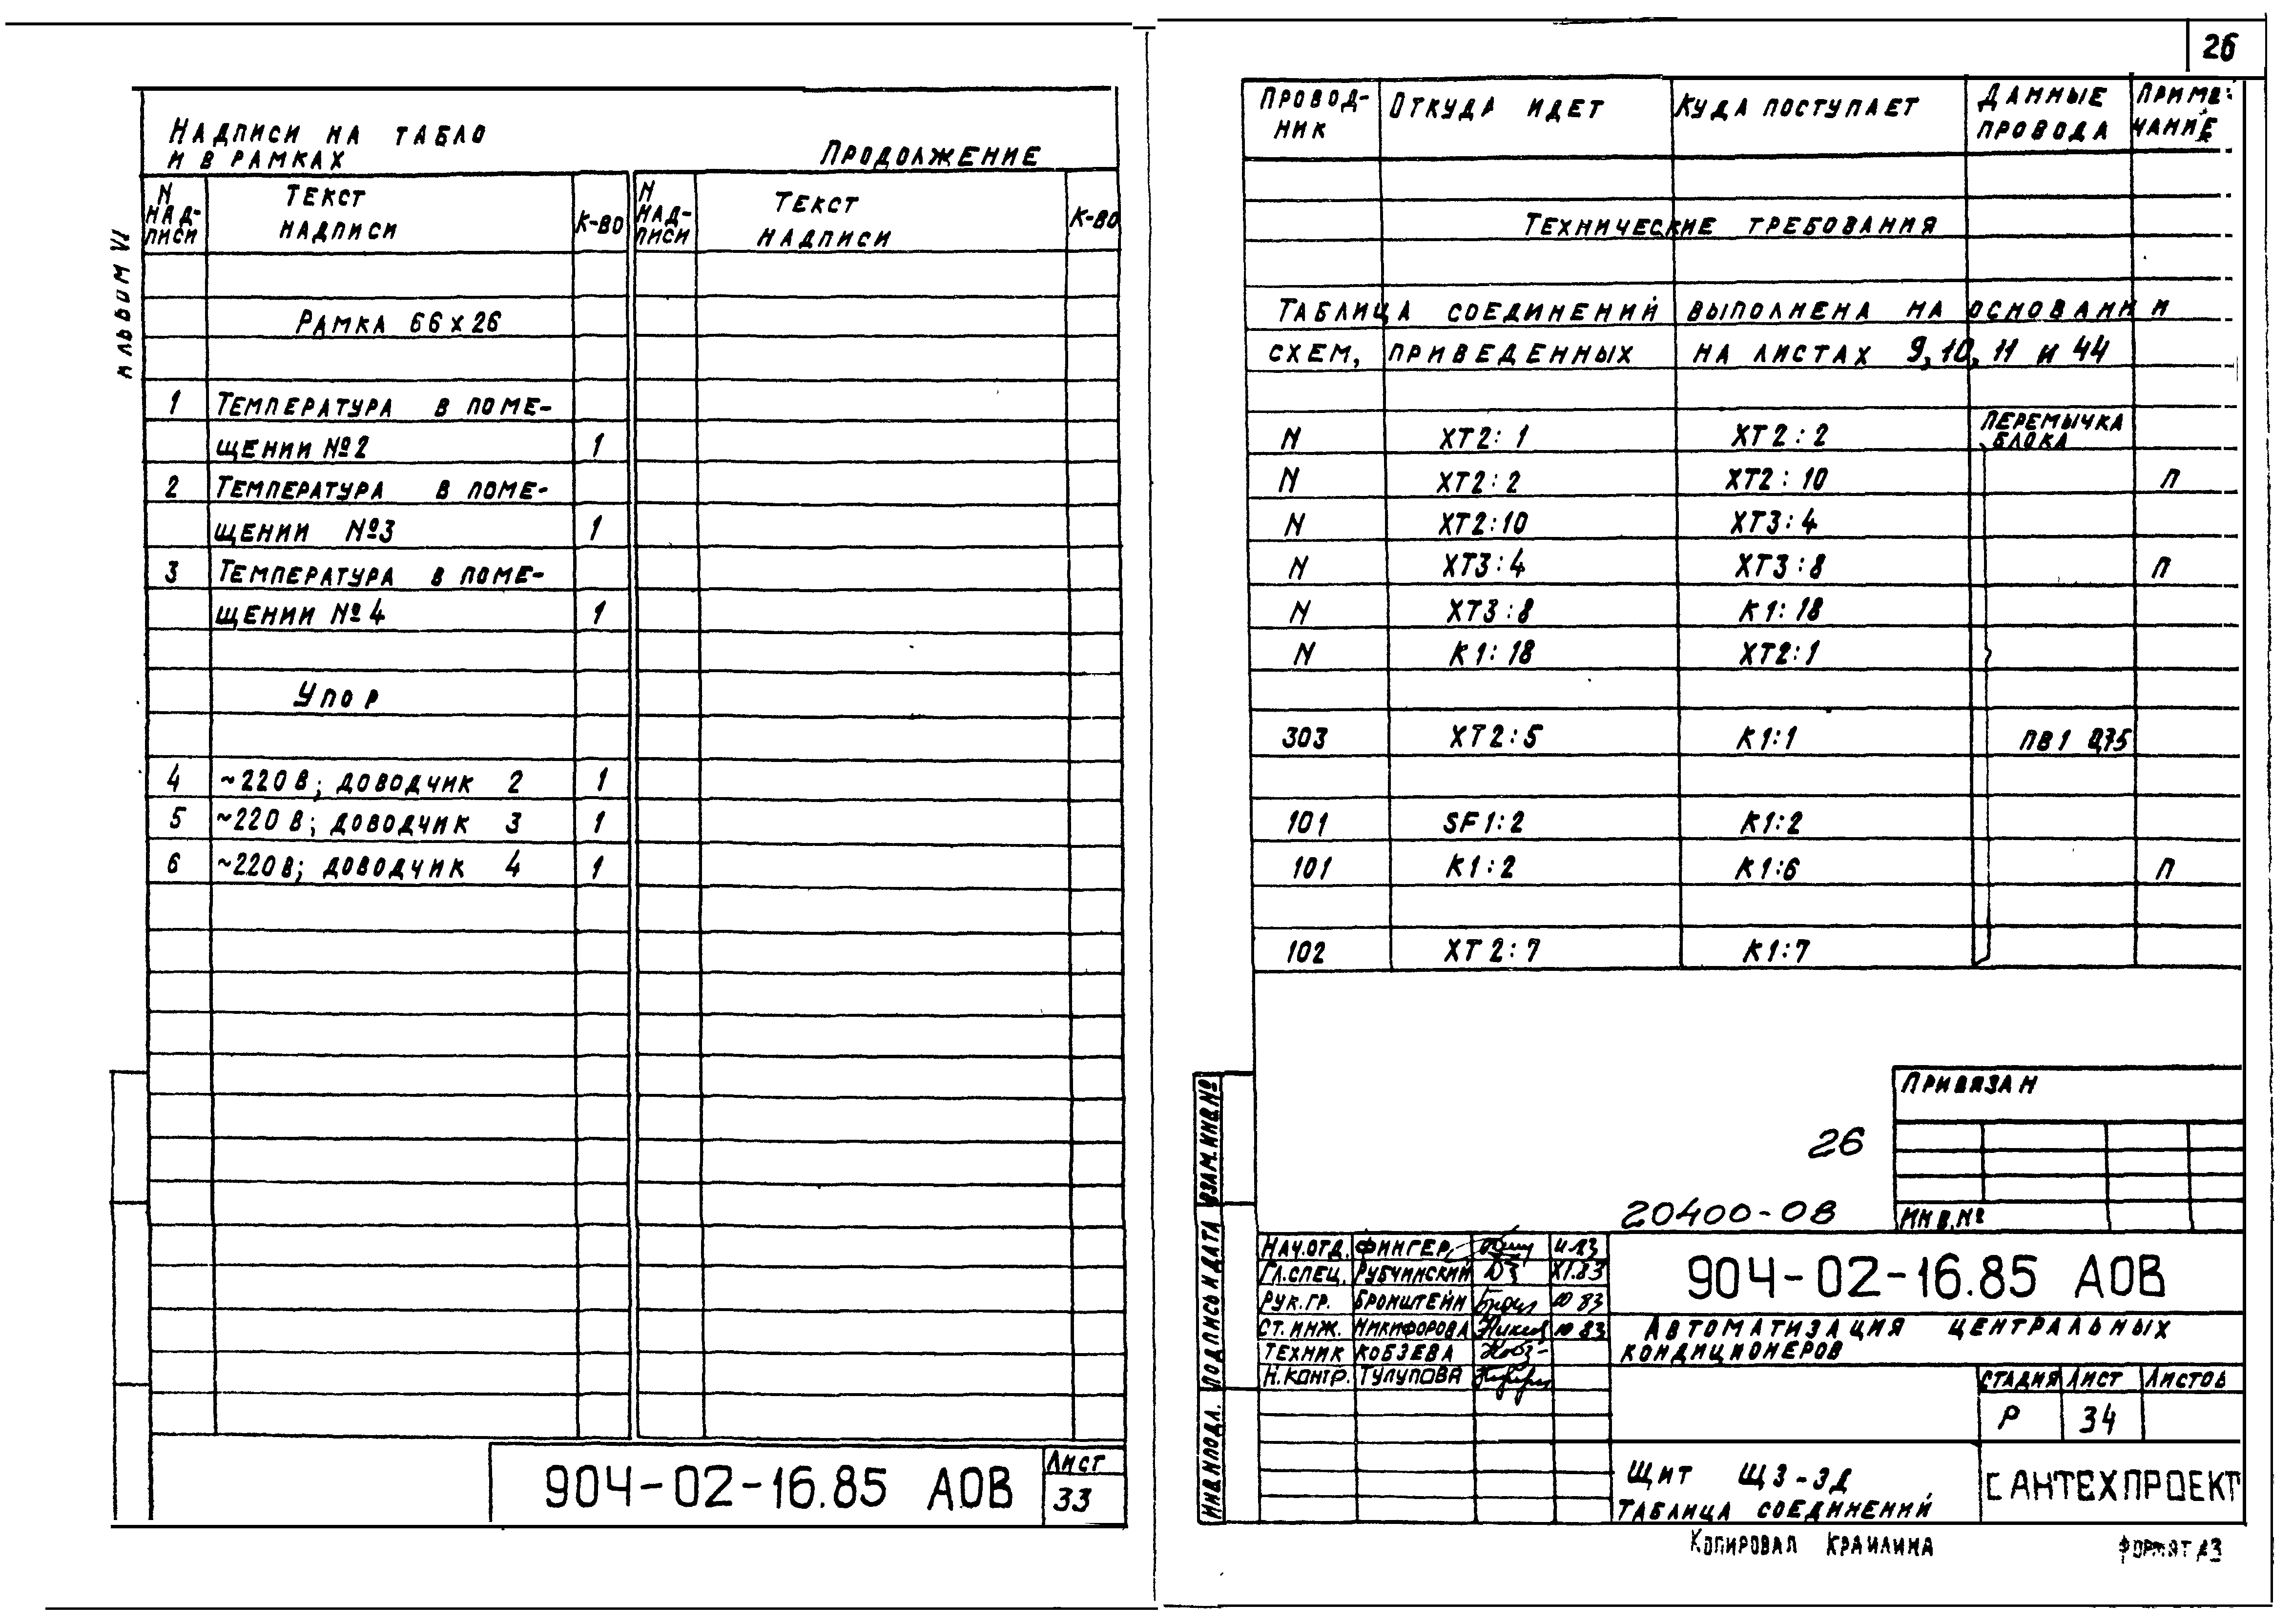 26
Альбом VI
Надписи на табло
и в рамках
Продолжение
N надписи Текст надписи К-во N надписи Текст надписи К-во
Рамка 66х26
1 Температура в поме-
щении №2 1
2 Температура в поме-
щении №3 1
3 Температура в поме-
щении №4 1
Упор
4 ~220 В; доводчик 2 1
5 ~220 В; доводчик 3 1
6 ~220 В; доводчик 4 1
904-02-16.85 АОВ
Лист
33
Провод-
ник Откуда идет Куда поступает Данные провода Примечание
Технические требования
Таблица соединений выполнена на основании
схем, приведенных на листах 9, 10, 11 и 44
N ХТ2:1 ХТ2:2 Перемычка блока
N ХТ2:2 ХТ2:10 П
N ХТ2:10 ХТ3:4
N ХТ3:4 ХТ3:8 П
N ХТ3:8 К1:18
N К1:18 ХТ2:1
303 ХТ2:5 К1:1 ПВ1 0,75
101 SF1:2 К1:2
101 К1:2 К1:6 П
102 ХТ2:7 К1:7
Привязан
26
20400-08
Инв.№
Взам.инв.№
Подпись и дата
Инв.№подл.
Нач.отд. Фингер
Гл.спец. Рубчинский XI.83
Рук.гр. Бронштейн 10 83
Ст.инж. Никифорова 10 83
Техник Кобзева
Н.контр. Тулупова
904-02-16.85 АОВ
Автоматизация центральных
кондиционеров
Стадия Лист Листов
Р 34
Щит Щ3-3Д
Таблица соединений
САНТЕХПРОЕКТ
Копировал Краилина
Формат А3